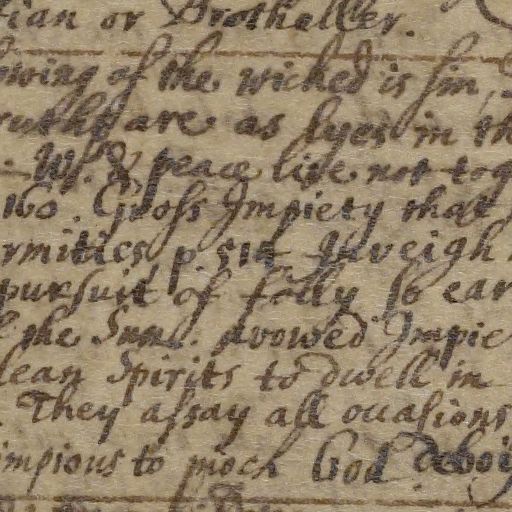 ian or Brotheller.
owing of the wicked is sin,
are as lyes in th
W. & peace live not tog
160. Gross Impiety that
rmities p. 514 Inveigh
pursuit of folly so ear
the Sun. avowed Impie
lean Spirits to dwell in
They assay all ocasions
impious to mock God deboi